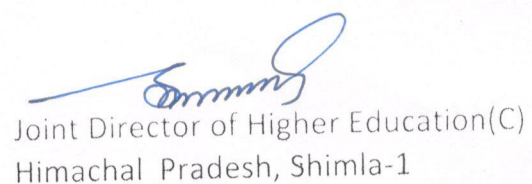 Joint Director of Higher Education(C)
Himachal Pradesh, Shimla-1